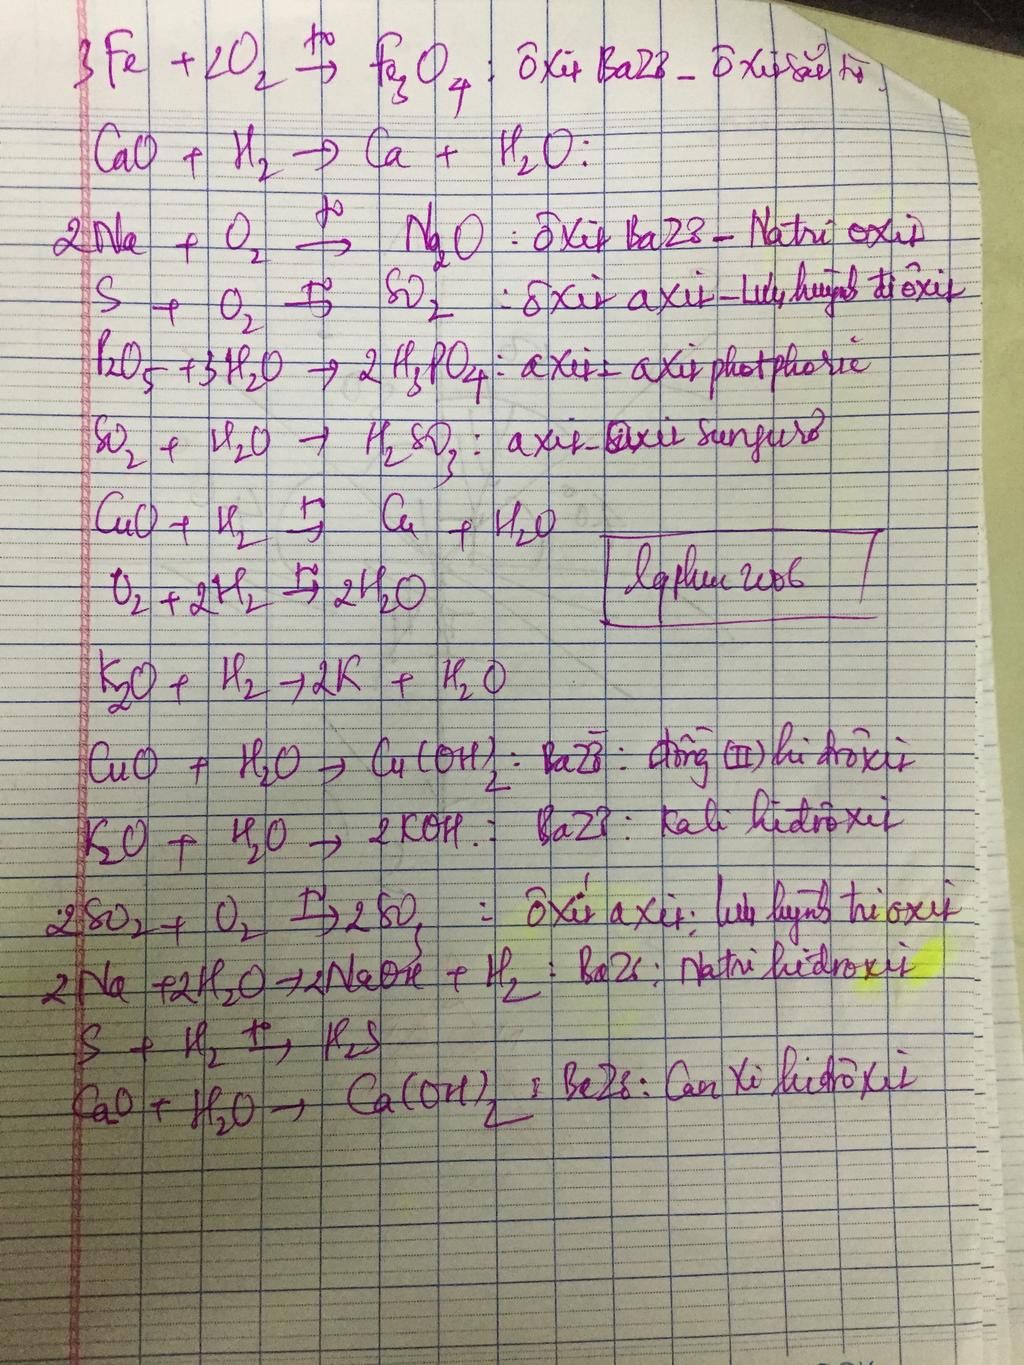 3Fe + 2O₂ →(t°) Fe₃O₄ : ôxit Bazơ - ôxit sắt từ
CaO + H₂ → Ca + H₂O :
2Na + O₂ →(t°) Na₂O : ôxit Bazơ - Natri oxit
S + O₂ →(t°) SO₂ : ôxit axit - Lưu huỳnh điôxit
P2O₅ + 3H₂O → 2H₃PO₄ : axit - axit photphoric
SO₂ + H₂O → H₂SO₃ : axit - axit sunfurơ
CuO + H₂ →(t°) Cu + H₂O
O₂ + 2H₂ →(t°) 2H₂O
K₂O + H₂ → 2K + H₂O
CuO + H₂O → Cu(OH)₂ : Bazơ : đồng (II) hiđrôxit
K₂O + H₂O → 2KOH : Bazơ : Kali hiđrôxit
2SO₂ + O₂ →(t°) 2SO₃ : ôxit axit : lưu huỳnh tri oxit
2Na + 2H₂O → 2NaOH + H₂ : Bazơ : Natri hiđroxit
S + H₂ →(t°) H₂S
CaO + H₂O → Ca(OH)₂ : Bazơ : Can xi hiđrôxit